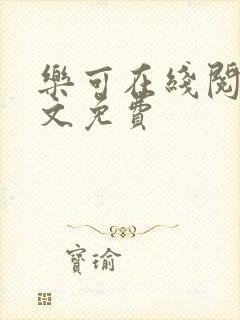 樂可在綫閱
文免費
寶瑜